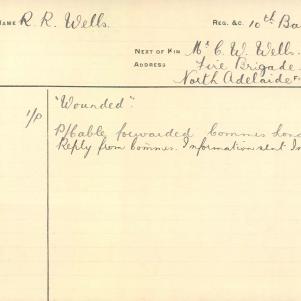 NAME R. R. Wells. REG. &C. 10th Ba
NEXT OF KIN Mr C. W. Wells.
ADDRESS Fire Brigade
North Adelaide F
"Wounded".
1/P P/Cable forwarded Commrs Lond
Reply from Commrs. Information sent In